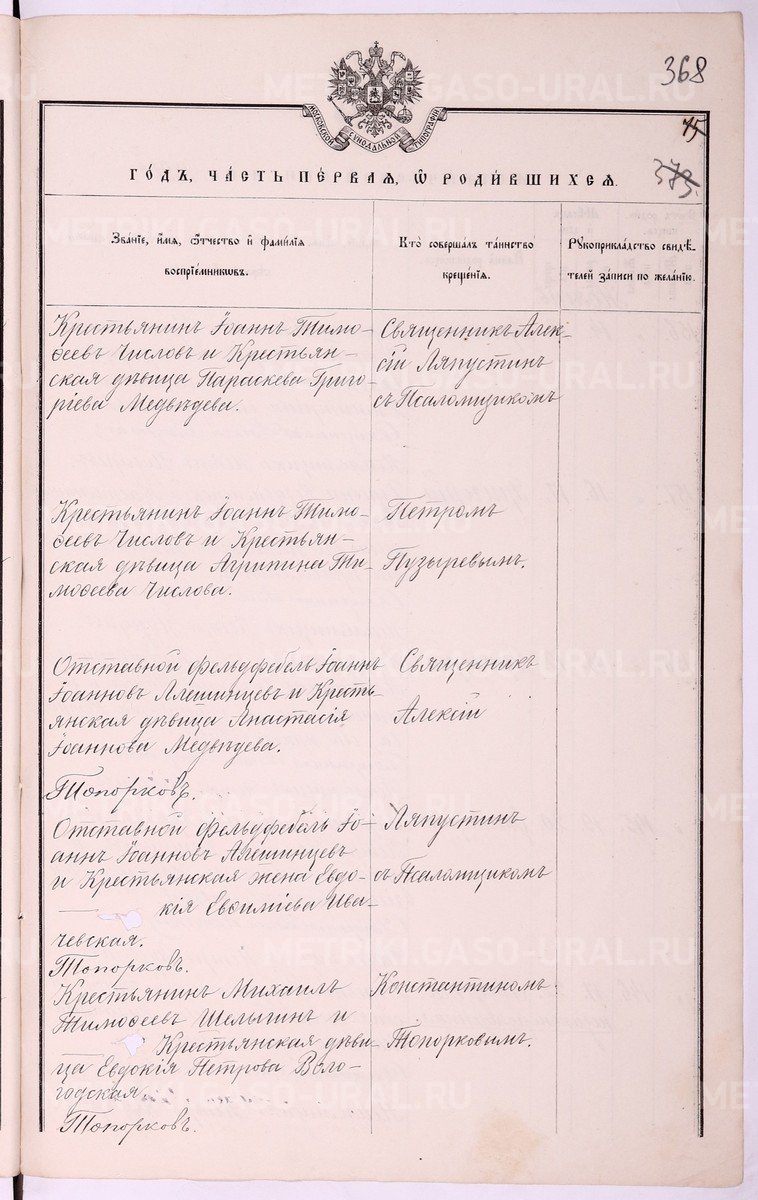 368
МОСКОВСКОЙ СѴНОДАЛЬНОЙ ТИПОГРАФІИ
75
373.
ГОДЪ, ЧАСТЬ ПЕРВАЯ, Ѡ РОДИВШИХСЯ.
Званіе, имя, ѻтчество и фамилія
воспріемниковъ.
Кто совершалъ таинство
крещенія.
Рукоприкладство свидѣ-
телей записи по желанію.
Крестьянинъ Іоаннъ Тимо-
ѳеевъ Числовъ и Крестьян-
ская дѣвица Параскева Григо-
ріева Медвѣдева.
Священникъ Алек-
сій Ляпустинъ
съ Псаломщикомъ
Крестьянинъ Іоаннъ Тимо-
ѳеевъ Числовъ и Крестьян-
ская дѣвица Агрипина Ти-
моѳеева Числова.
Петромъ
Пузыревымъ.
Отставной фельдфебель Іоаннъ
Іоанновъ Алешинцевъ и Кресть-
янская дѣвица Анастасія
Іоаннова Медвѣдева.
Топорковъ.
Священникъ
Алексій
Отставной фельдфебель Іо-
аннъ Іоанновъ Алешинцевъ
и Крестьянская жена Евдо-
кія Евѳиміева Ива-
чевская.
Топорковъ.
Ляпустинъ
съ Псаломщикомъ
Крестьянинъ Михаилъ
Тимоѳеевъ Шелыгинъ и
Крестьянская дѣви-
ца Евдокія Петрова Воло-
годская.
Топорковъ.
Константиномъ
Топорковымъ.
METRIKI.GASO-URAL.RU